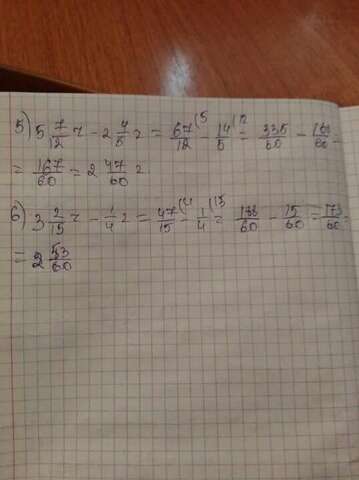 5) 5 7/12 ч - 2 4/5 ч = 67/12 (5 - 14/5 (12 = 335/60 - 168/60 =
= 167/60 = 2 47/60 ч
6) 3 2/15 ч - 1/4 ч = 47/15 (4 - 1/4 (15 = 188/60 - 15/60 = 173/60 =
= 2 53/60